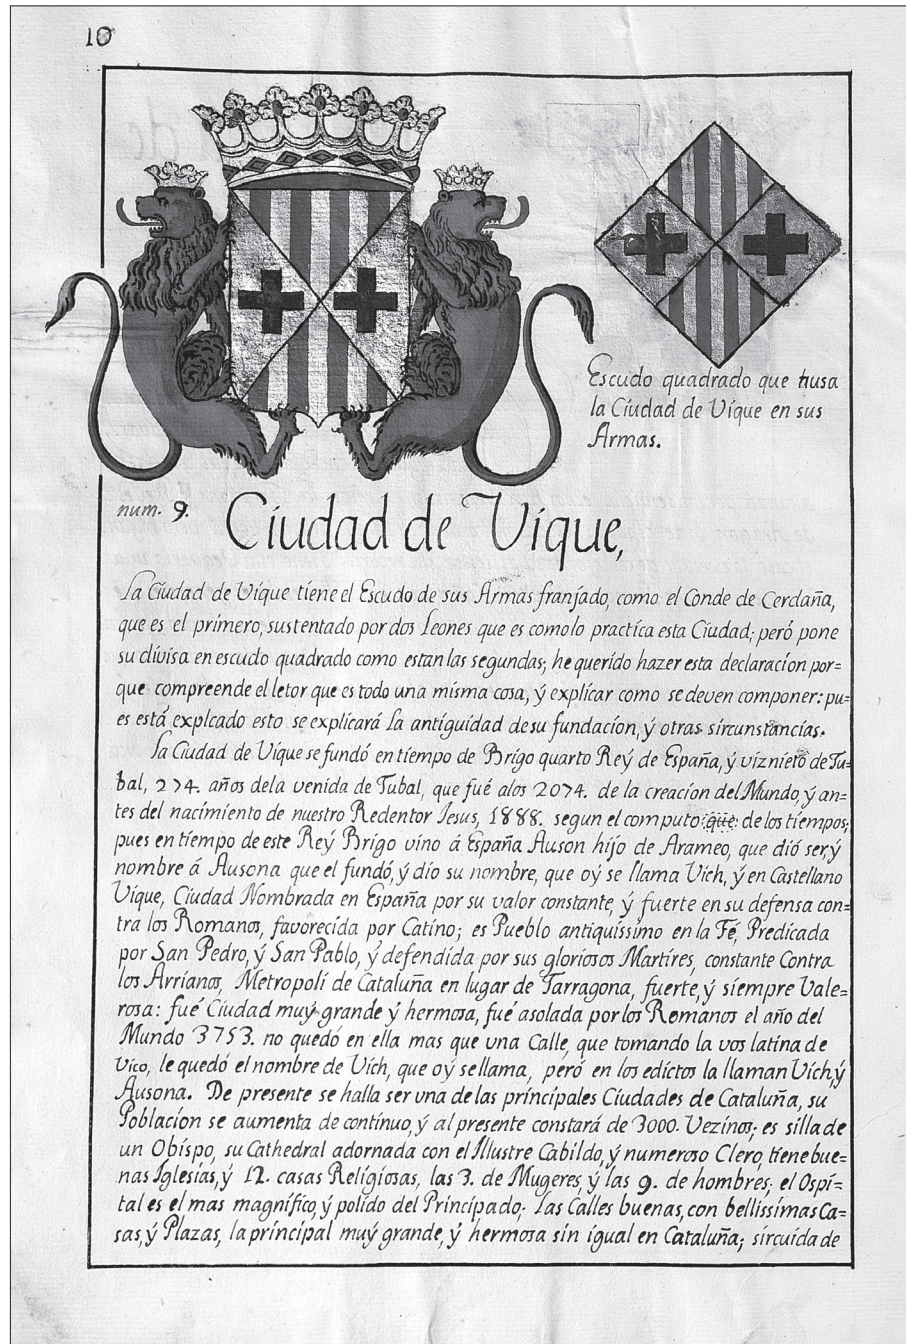 10
Escudo quadrado que husa
la Ciudad de Vique en sus
Armas.
num. 9.
Ciudad de Vique,
La Ciudad de Vique tiene el Escudo de sus Armas franjado, como el Conde de Cerdaña,
que es el primero, sustentado por dos Leones que es como lo practica esta Ciudad; peró pone
su divisa en escudo quadrado como estan las segundas; he querido hazer esta declaracion por=
que compreende el letor que es todo una misma cosa, ÿ explicar como se deven componer: pu=
es está explcado esto se explicará la antiguidad de su fundacion, ÿ otras sircunstancias.
La Ciudad de Vique se fundó en tiempo de Brigo quarto Reÿ de España, ÿ viznieto de Tu=
bal, 274. años dela venida de Tubal, que fué alos 2074. de la creacion del Mundo, ÿ an=
tes del nacimiento de nuestro Redentor Iesus, 1888. segun el computo que de los tiempos;
pues en tiempo de este Reÿ Brigo vino á España Auson hijo de Arameo, que dió ser, ÿ
nombre á Ausona que el fundó, ÿ dio su nombre, que oÿ se llama Vich, ÿ en Castellano
Vique, Ciudad Nombrada en España por su valor constante, ÿ fuerte en su defensa con=
tra los Romanos, favorecida por Catino; es Pueblo antiquissimo en la Fé, Predicada
por San Pedro, ÿ San Pablo, ÿ defendida por sus gloriosos Martires, constante Contra
los Arrianos, Metropoli de Cataluña en lugar de Tarragona, fuerte, ÿ siempre Vale=
rosa: fué Ciudad muÿ grande ÿ hermosa, fué asolada por los Romanos el año del
Mundo 3753. no quedó en ella mas que una Calle, que tomando la vos latina de
Vico, le quedó el nombre de Vich, que oÿ se llama, peró en los edictos la llaman Vich, ÿ
Ausona. De presente se halla ser una de las principales Ciudades de Cataluña, su
Poblacion se aumenta de continuo, ÿ al presente constará de 3000. Vezinos; es silla de
un Obispo, su Cathedral adornada con el Illustre Cabildo, ÿ numeroso Clero, tiene bue=
nas Iglesias, ÿ 12. casas Religiosas, las 3. de Mugeres, ÿ las 9. de hombres; el Ospi=
tal es el mas magnifico, ÿ polido del Principado; las Calles buenas, con bellissimas Ca=
sas, ÿ Plazas, la principal muÿ grande, ÿ hermosa sin igual en Cataluña; sircuida de